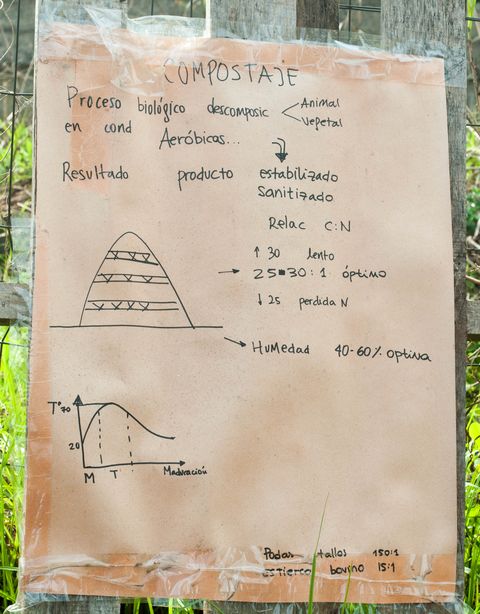 COMPOSTAJE
Proceso biológico descomposic < Animal
Vegetal
en cond Aeróbicas...
Resultado producto estabilizado
sanitizado
Relac C:N
↑ 30 lento
→ 25-30:1 óptimo
↓ 25 perdida N
→ Humedad 40-60% optima
T° 70
20
M T Maduración
Podas tallos 150:1
estiercol bovino 15:1